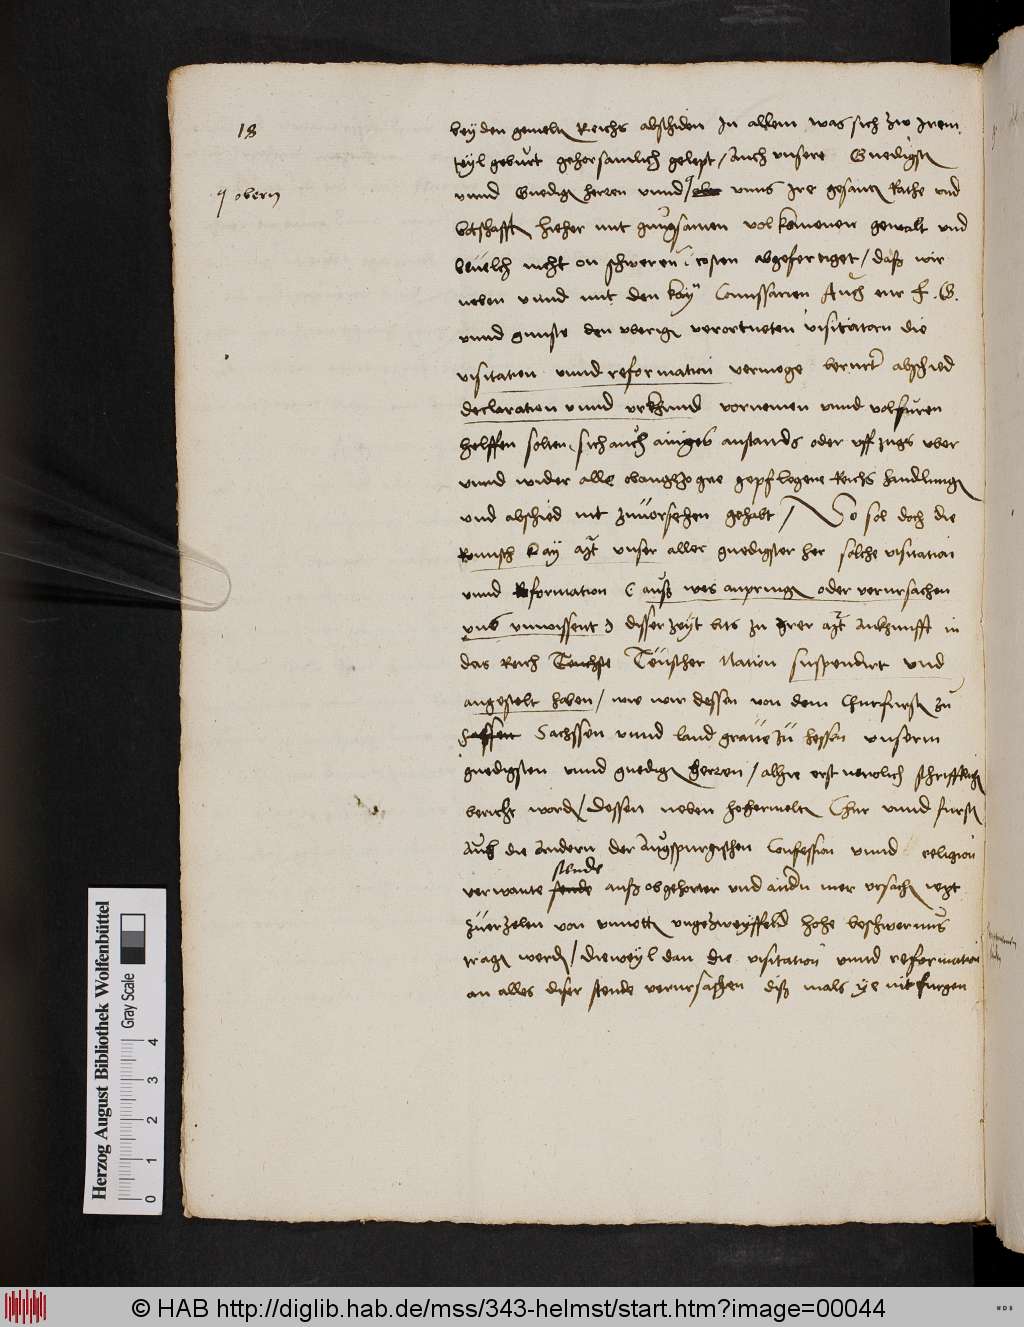 18
bey den gemelten Reichs abschiden In allem was sich zw Irem
teyl geburt gehorsamlich gelept / Auch unsere Gnedigste
unnd Gnedige herren unnd obern unns Ire gesanten Rathe und
obern
botshafften hieher mit gnugsamen volkomenen gewalt und
bevelch nicht on schweren costen abgefertiget / daß wir
neben unnd mit den kay Comissarien Auch eur F. G.
unnd gunste den uberigen verordneten visitatorn die
visitation unnd reformation vermoge berurter abschied
declaration unnd urkhund vornemen unnd volfuren
helffen solten, sich auch ainiges anstands oder uffzugs uber
unnd wider alle obangezogne gepflogene Reichs handlungen
und abschied nit zuvorsehen gehabt / So sol doch die
Romisch kay Mt unser aller gnedigster her solche visitation
unnd Reformation ( auß was anpringen oder verursachen
uns unwissent ) disser zeyt bis zu Irer Mt Ankunfft in
das Reich Teutscher Nation suspendirt und
angestelt haben / wie wir dessen von dem Churfursten zu
Sachssen unnd landgrave zu hessen unserm
gnedigsten unnd gnedigen herren / alhie erst newlich schrifftlichen
bericht worden / Dessen neben hochermelten Chur unnd fursten
Auch die Andern der Augspurgischen Confession unnd religion
stende
verwante auß obgehorter und andern mer ursachen itzt
zuerzelen von unnotten ungezweyffeld hohe beschwernus
tragen werden / dieweyl dan die visitation unnd reformation
an alles diser stende verursachen diß mals ye nit furgen
Herzog August Bibliothek Wolfenbüttel
Gray Scale
0 1 2 3 4
© HAB http://diglib.hab.de/mss/343-helmst/start.htm?image=00044